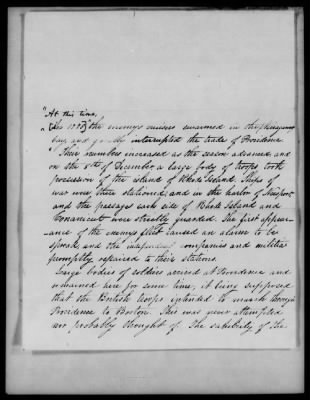 "At this time,
"the enemy's cruisers swarmed in the Narragansett
bay, and greatly interrupted the trade of Providence.
"Their numbers increased as the season advanced, and
on the 8th of December a large body of troops took
possession of the island of Rhode Island. Ships of
war were then stationed, and in the harbor of Newport
and the passages each side of Rhode Island and
Conanicut were strictly guarded. The first appear-
-ance of the enemy's fleet caused an alarm to be
spread, and the independent companies and militia
promptly repaired to their stations.
Large bodies of soldiers arrived at Providence and
remained here for some time, it being supposed
that the British troops intended to march through
Providence to Boston. This was never attempted
nor probably thought of. The safety of the